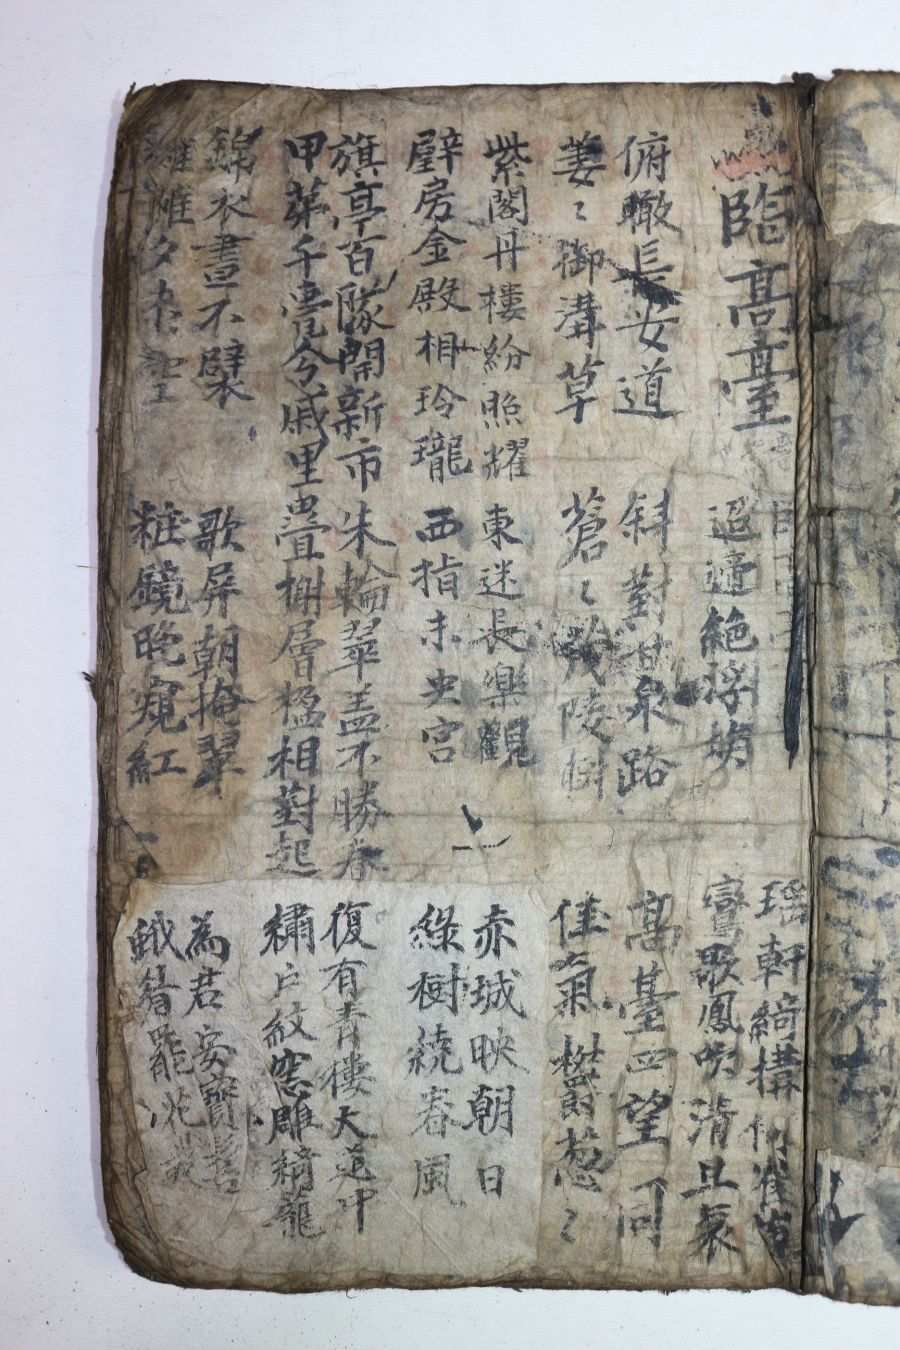 臨高臺
迢遞絶浮埃
瑤軒綺構何崔嵬
鸞歌鳳吹清且哀
俯瞰長安道
萋〻御溝草
斜對甘泉路
蒼〻茂陵樹
髙臺四望同
佳氣欝葱〻
紫閣丹樓紛照耀
壁房金殿相玲瓏
東迷長樂觀
西指未央宮
赤城映朝日
綠樹繞春風
旗亭百隊開新市
甲第千甍分戚里
朱輪翠盖不勝春
疊榭層楹相對起
復有青樓大道中
繡戶紋窓雕綺蘢
錦衣晝不襞
羅帷夕未空
歌屏朝掩翠
粧鏡晚窺紅
為君安寶髻
蛾眉罷花叢